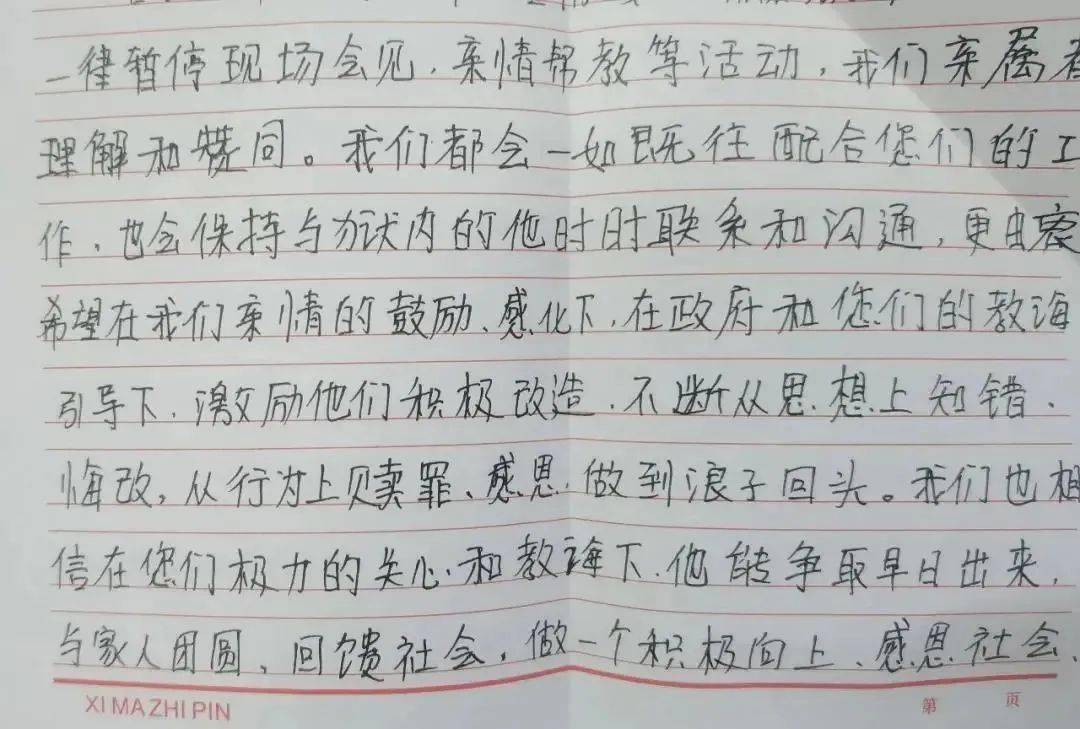 一律暂停现场会见，亲情帮教等活动，我们亲属
理解和赞同。我们都会一如既往配合您们的工
作，也会保持与狱内的他时时联系和沟通，更由衷
希望在我们亲情的鼓励、感化下，在政府和您们的教诲
引导下，激励他们积极改造，不断从思想上知错、
悔改，从行为上赎罪、感恩，做到浪子回头。我们也相
信在您们极力的关心和教诲下，他能争取早日出来，
与家人团圆，回馈社会，做一个积极向上、感恩社会、
XI MA ZHI PIN
第 页